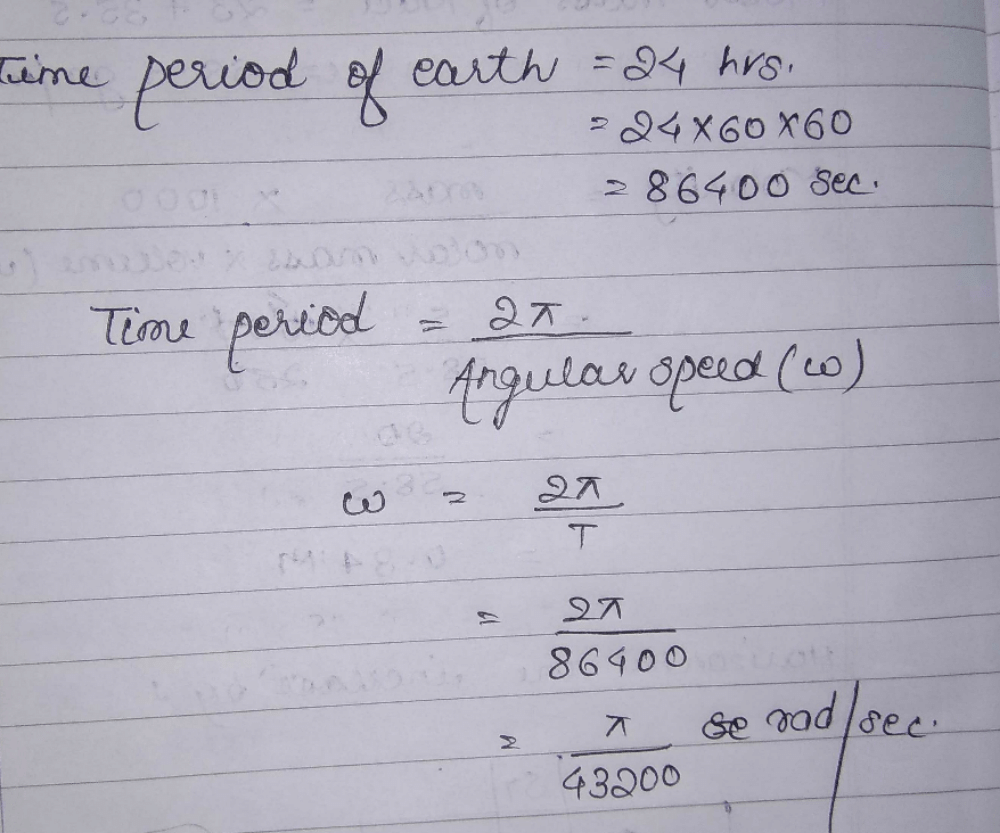 Time period of earth = 24 hrs.
= 24 x 60 x 60
= 86400 sec.
Time period = 2π
Angular speed (ω)
ω = 2π
T
= 2π
86400
= π se rad/sec.
43200